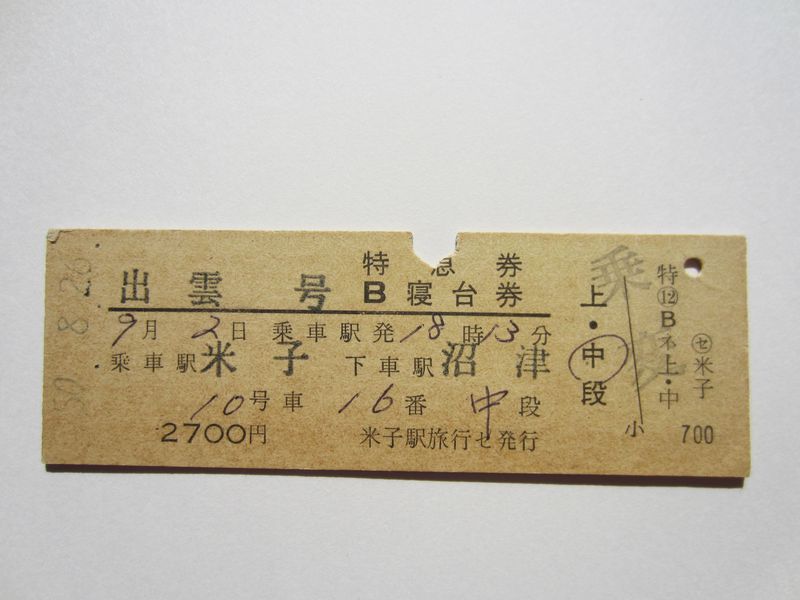 50. 8. 26
特急券
出雲号 B寝台券
9月2日 乗車駅発18時13分
乗車駅 米子 下車駅 沼津
10号車 16番 中段
2700円 米子駅旅行セ発行
上・中段
乗変
小
特⑫Bネ上・中
㋝米子
700